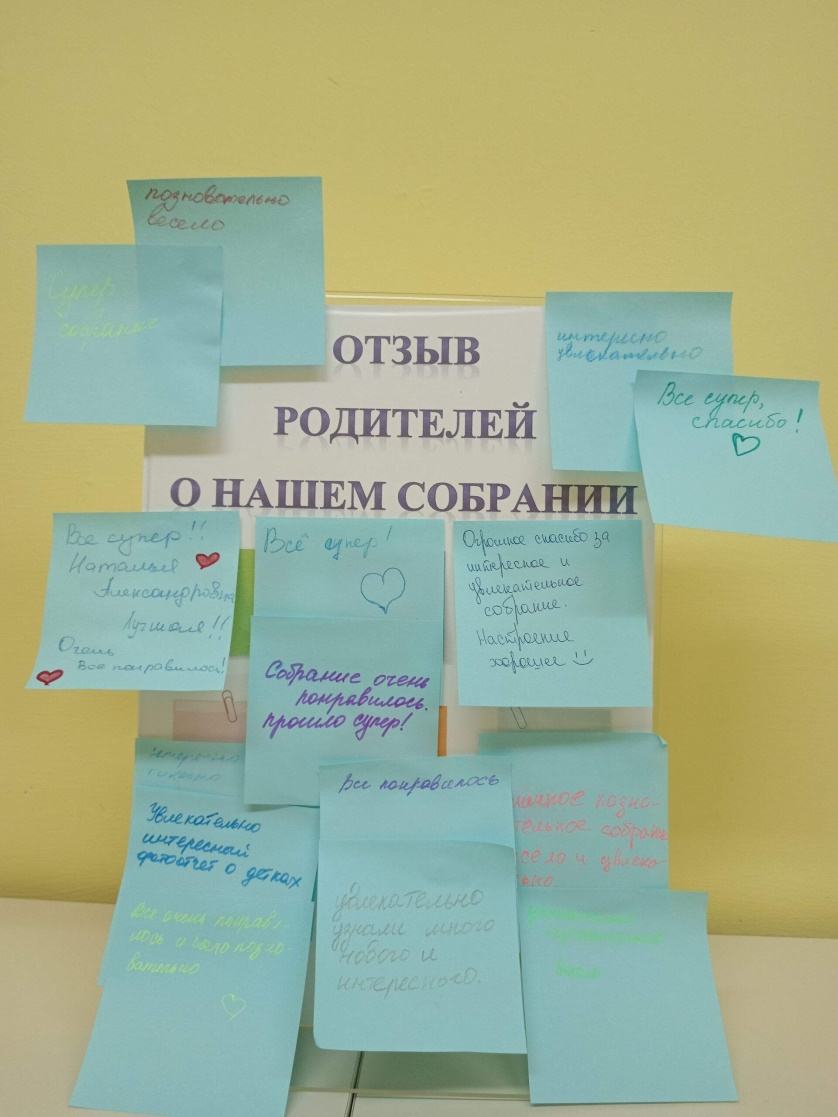 позновательно
весело
Супер
собрание
ОТЗЫВ
РОДИТЕЛЕЙ
О НАШЕМ СОБРАНИИ
интересно
увлекательно
Все супер,
спасибо!
Все супер!!
Наталья
Александровна
Лучшая!!
Очень
Все понравилось!
Всё супер!
Огромное спасибо за
интересное и
увлекательное
собрание.
Настроение
хорошее
Собрание очень
понравилось.
прошло супер!
интересно
Увлекательно
интересный
фотоотчет о детках
Все очень понрави-
лось и было позно-
вательно
Все понравилось
увлекательно
узнали много
нового и
интересного.
позна-
собрание
и увлека-